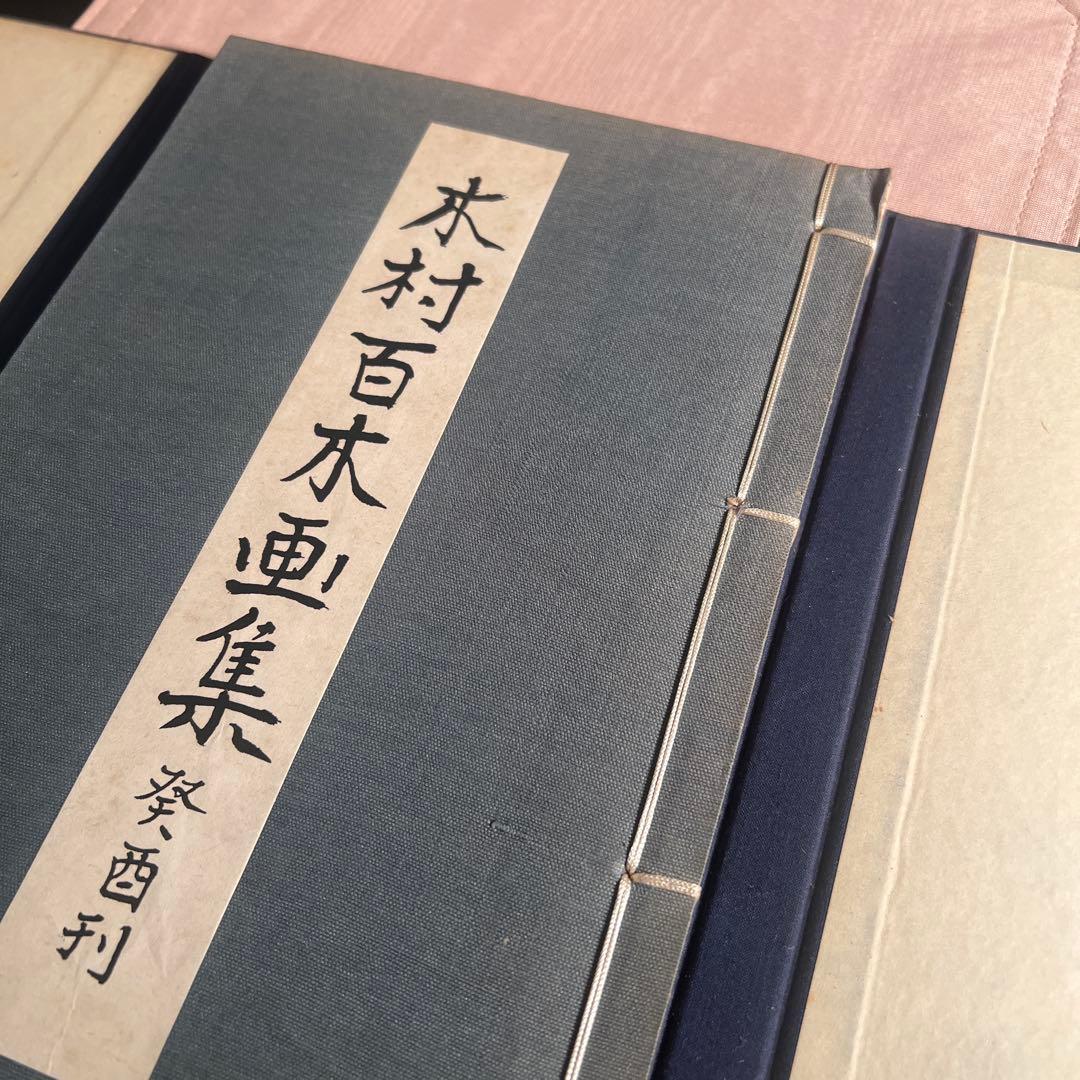 木村百木画集 癸酉刊